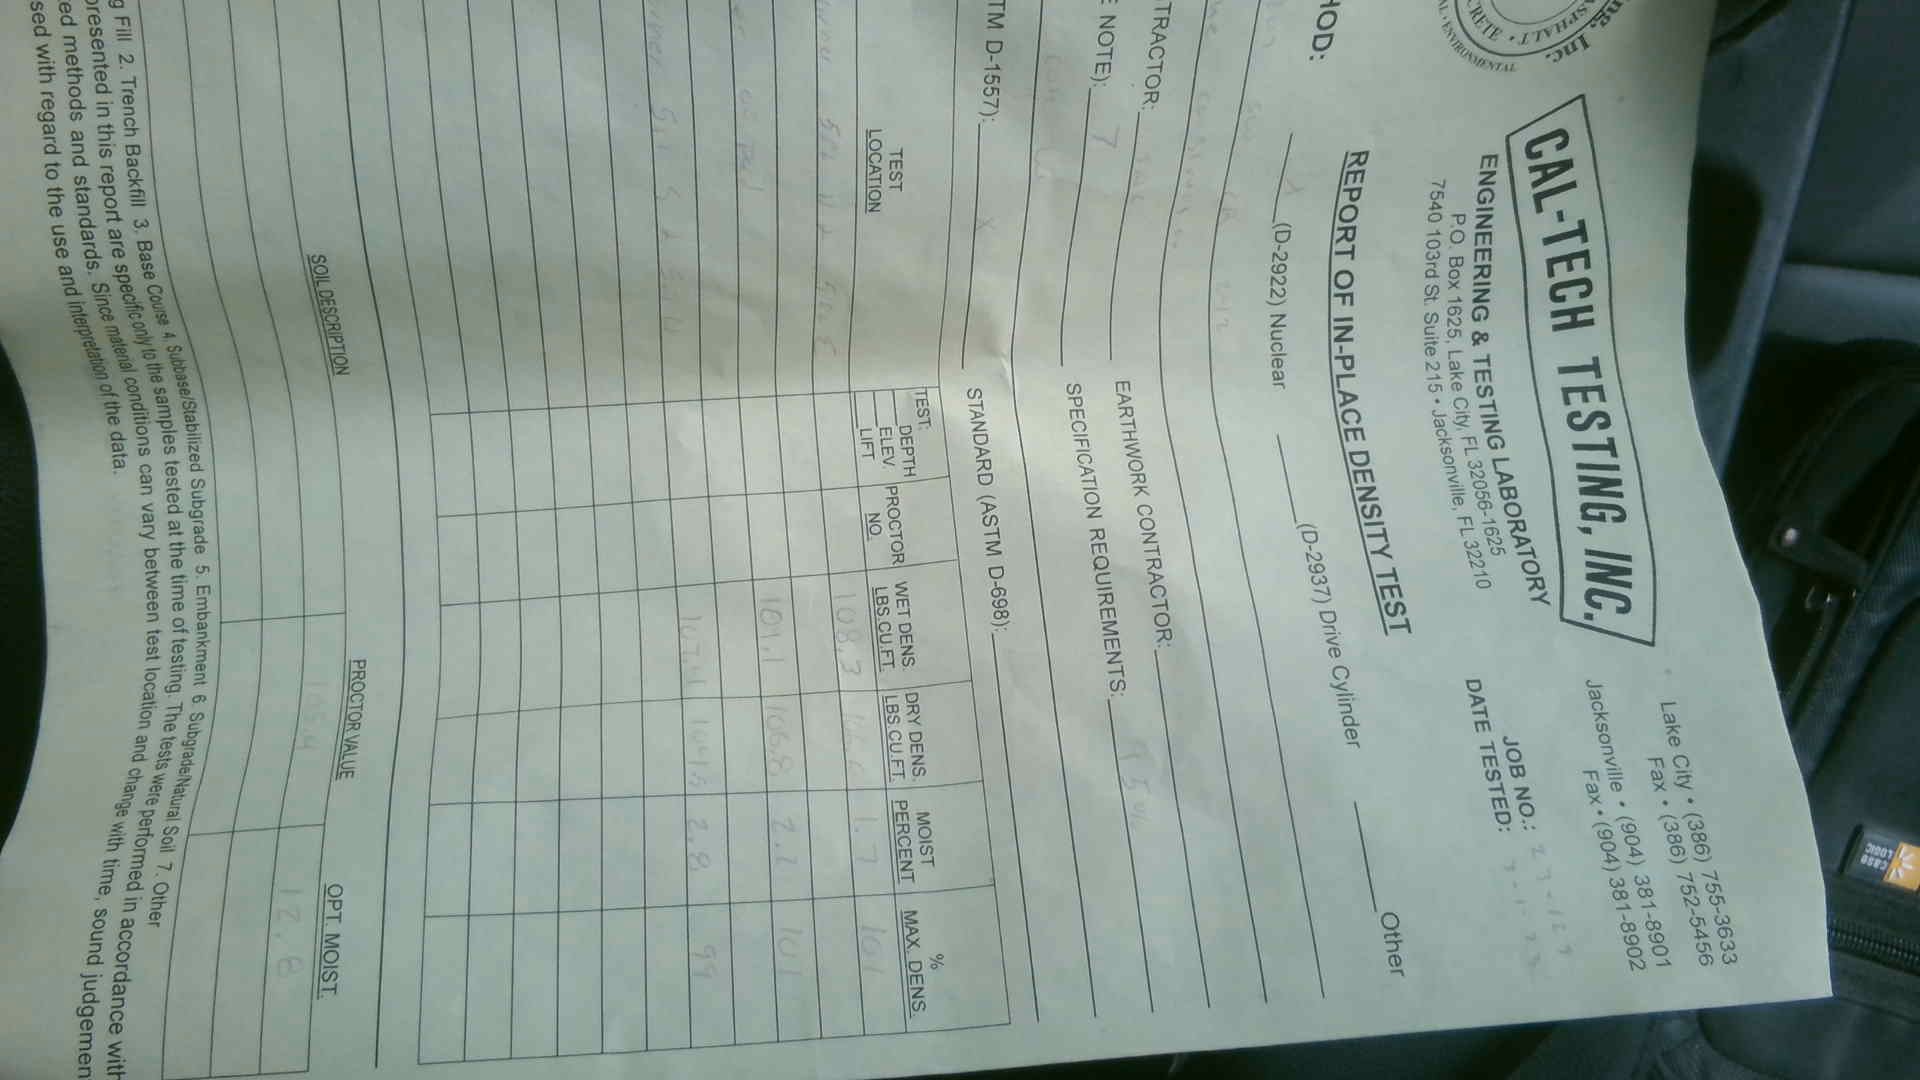 ng, Inc.
ASPHALT
CRETE
ENVIRONMENTAL
CAL-TECH TESTING, INC.
ENGINEERING & TESTING LABORATORY
P.O. Box 1625, Lake City, FL 32056-1625
7540 103rd St. Suite 215 • Jacksonville, FL 32210
Lake City • (386) 755-3633
Fax • (386) 752-5456
Jacksonville • (904) 381-8901
Fax • (904) 381-8902
JOB NO.:
DATE TESTED:
REPORT OF IN-PLACE DENSITY TEST
HOD: (D-2922) Nuclear (D-2937) Drive Cylinder Other
TRACTOR: EARTHWORK CONTRACTOR:
E NOTE): 7 SPECIFICATION REQUIREMENTS: 95%
TM D-1557): X STANDARD (ASTM D-698):
TEST LOCATION
TEST:
DEPTH
ELEV.
LIFT
PROCTOR NO.
WET DENS. LBS.CU.FT.
DRY DENS. LBS.CU.FT.
MOIST PERCENT
% MAX. DENS.
108.3 1.7 101
109.1 106.8 2.2 101
107.4 104.5 2.8 99
SOIL DESCRIPTION PROCTOR VALUE OPT. MOIST.
105.4 12.8
g Fill 2. Trench Backfill 3. Base Course 4. Subbase/Stabilized Subgrade 5. Embankment 6. Subgrade/Natural Soil 7. Other
presented in this report are specific only to the samples tested at the time of testing. The tests were performed in accordance with
ed methods and standards. Since material conditions can vary between test location and change with time, sound judgement
sed with regard to the use and interpretation of the data.